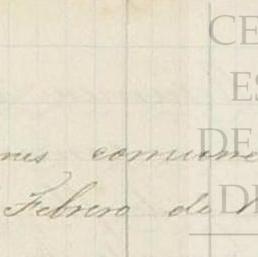 CE
ES
DE
DE
comune
Febrero de